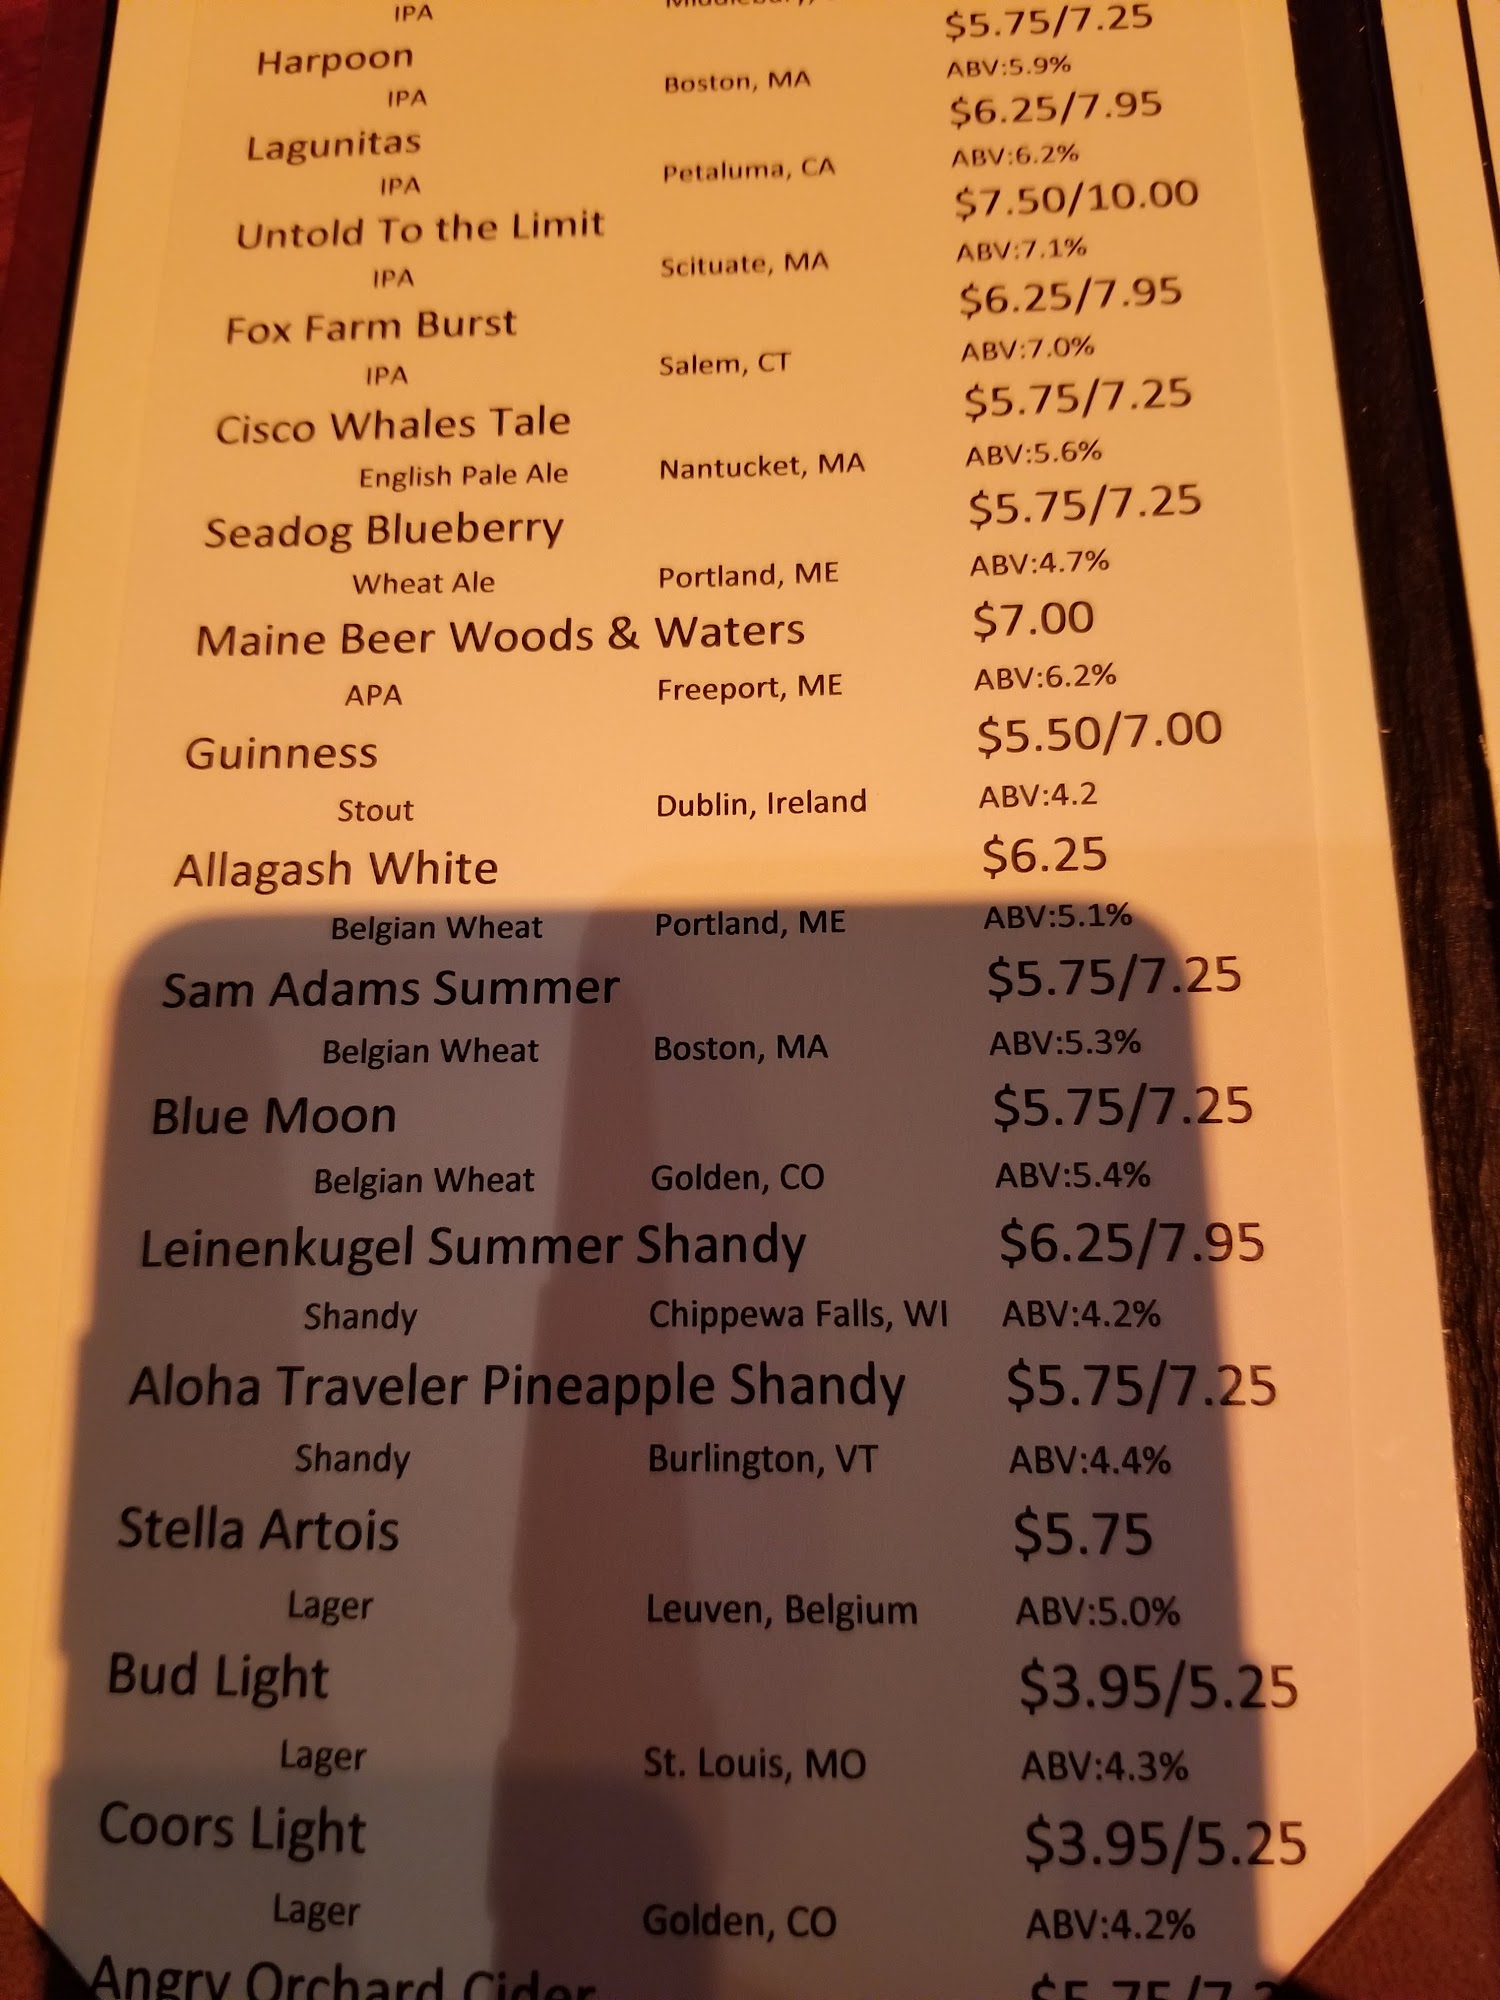 IPA
$5.75/7.25
Harpoon
ABV:5.9%
IPA Boston, MA
$6.25/7.95
Lagunitas
ABV:6.2%
IPA Petaluma, CA
$7.50/10.00
Untold To the Limit
ABV:7.1%
IPA Scituate, MA
$6.25/7.95
Fox Farm Burst
ABV:7.0%
IPA Salem, CT
$5.75/7.25
Cisco Whales Tale
ABV:5.6%
English Pale Ale Nantucket, MA
$5.75/7.25
Seadog Blueberry
Wheat Ale Portland, ME ABV:4.7%
Maine Beer Woods & Waters $7.00
APA Freeport, ME ABV:6.2%
Guinness $5.50/7.00
Stout Dublin, Ireland ABV:4.2
Allagash White $6.25
Belgian Wheat Portland, ME ABV:5.1%
Sam Adams Summer $5.75/7.25
Belgian Wheat Boston, MA ABV:5.3%
Blue Moon $5.75/7.25
Belgian Wheat Golden, CO ABV:5.4%
Leinenkugel Summer Shandy $6.25/7.95
Shandy Chippewa Falls, WI ABV:4.2%
Aloha Traveler Pineapple Shandy $5.75/7.25
Shandy Burlington, VT ABV:4.4%
Stella Artois $5.75
Lager Leuven, Belgium ABV:5.0%
Bud Light $3.95/5.25
Lager St. Louis, MO ABV:4.3%
Coors Light $3.95/5.25
Lager Golden, CO ABV:4.2%
Angry Orchard Cider